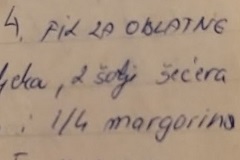 4. FIL ZA OBLATNE
2 šolji šećera
i 1/4 margarina